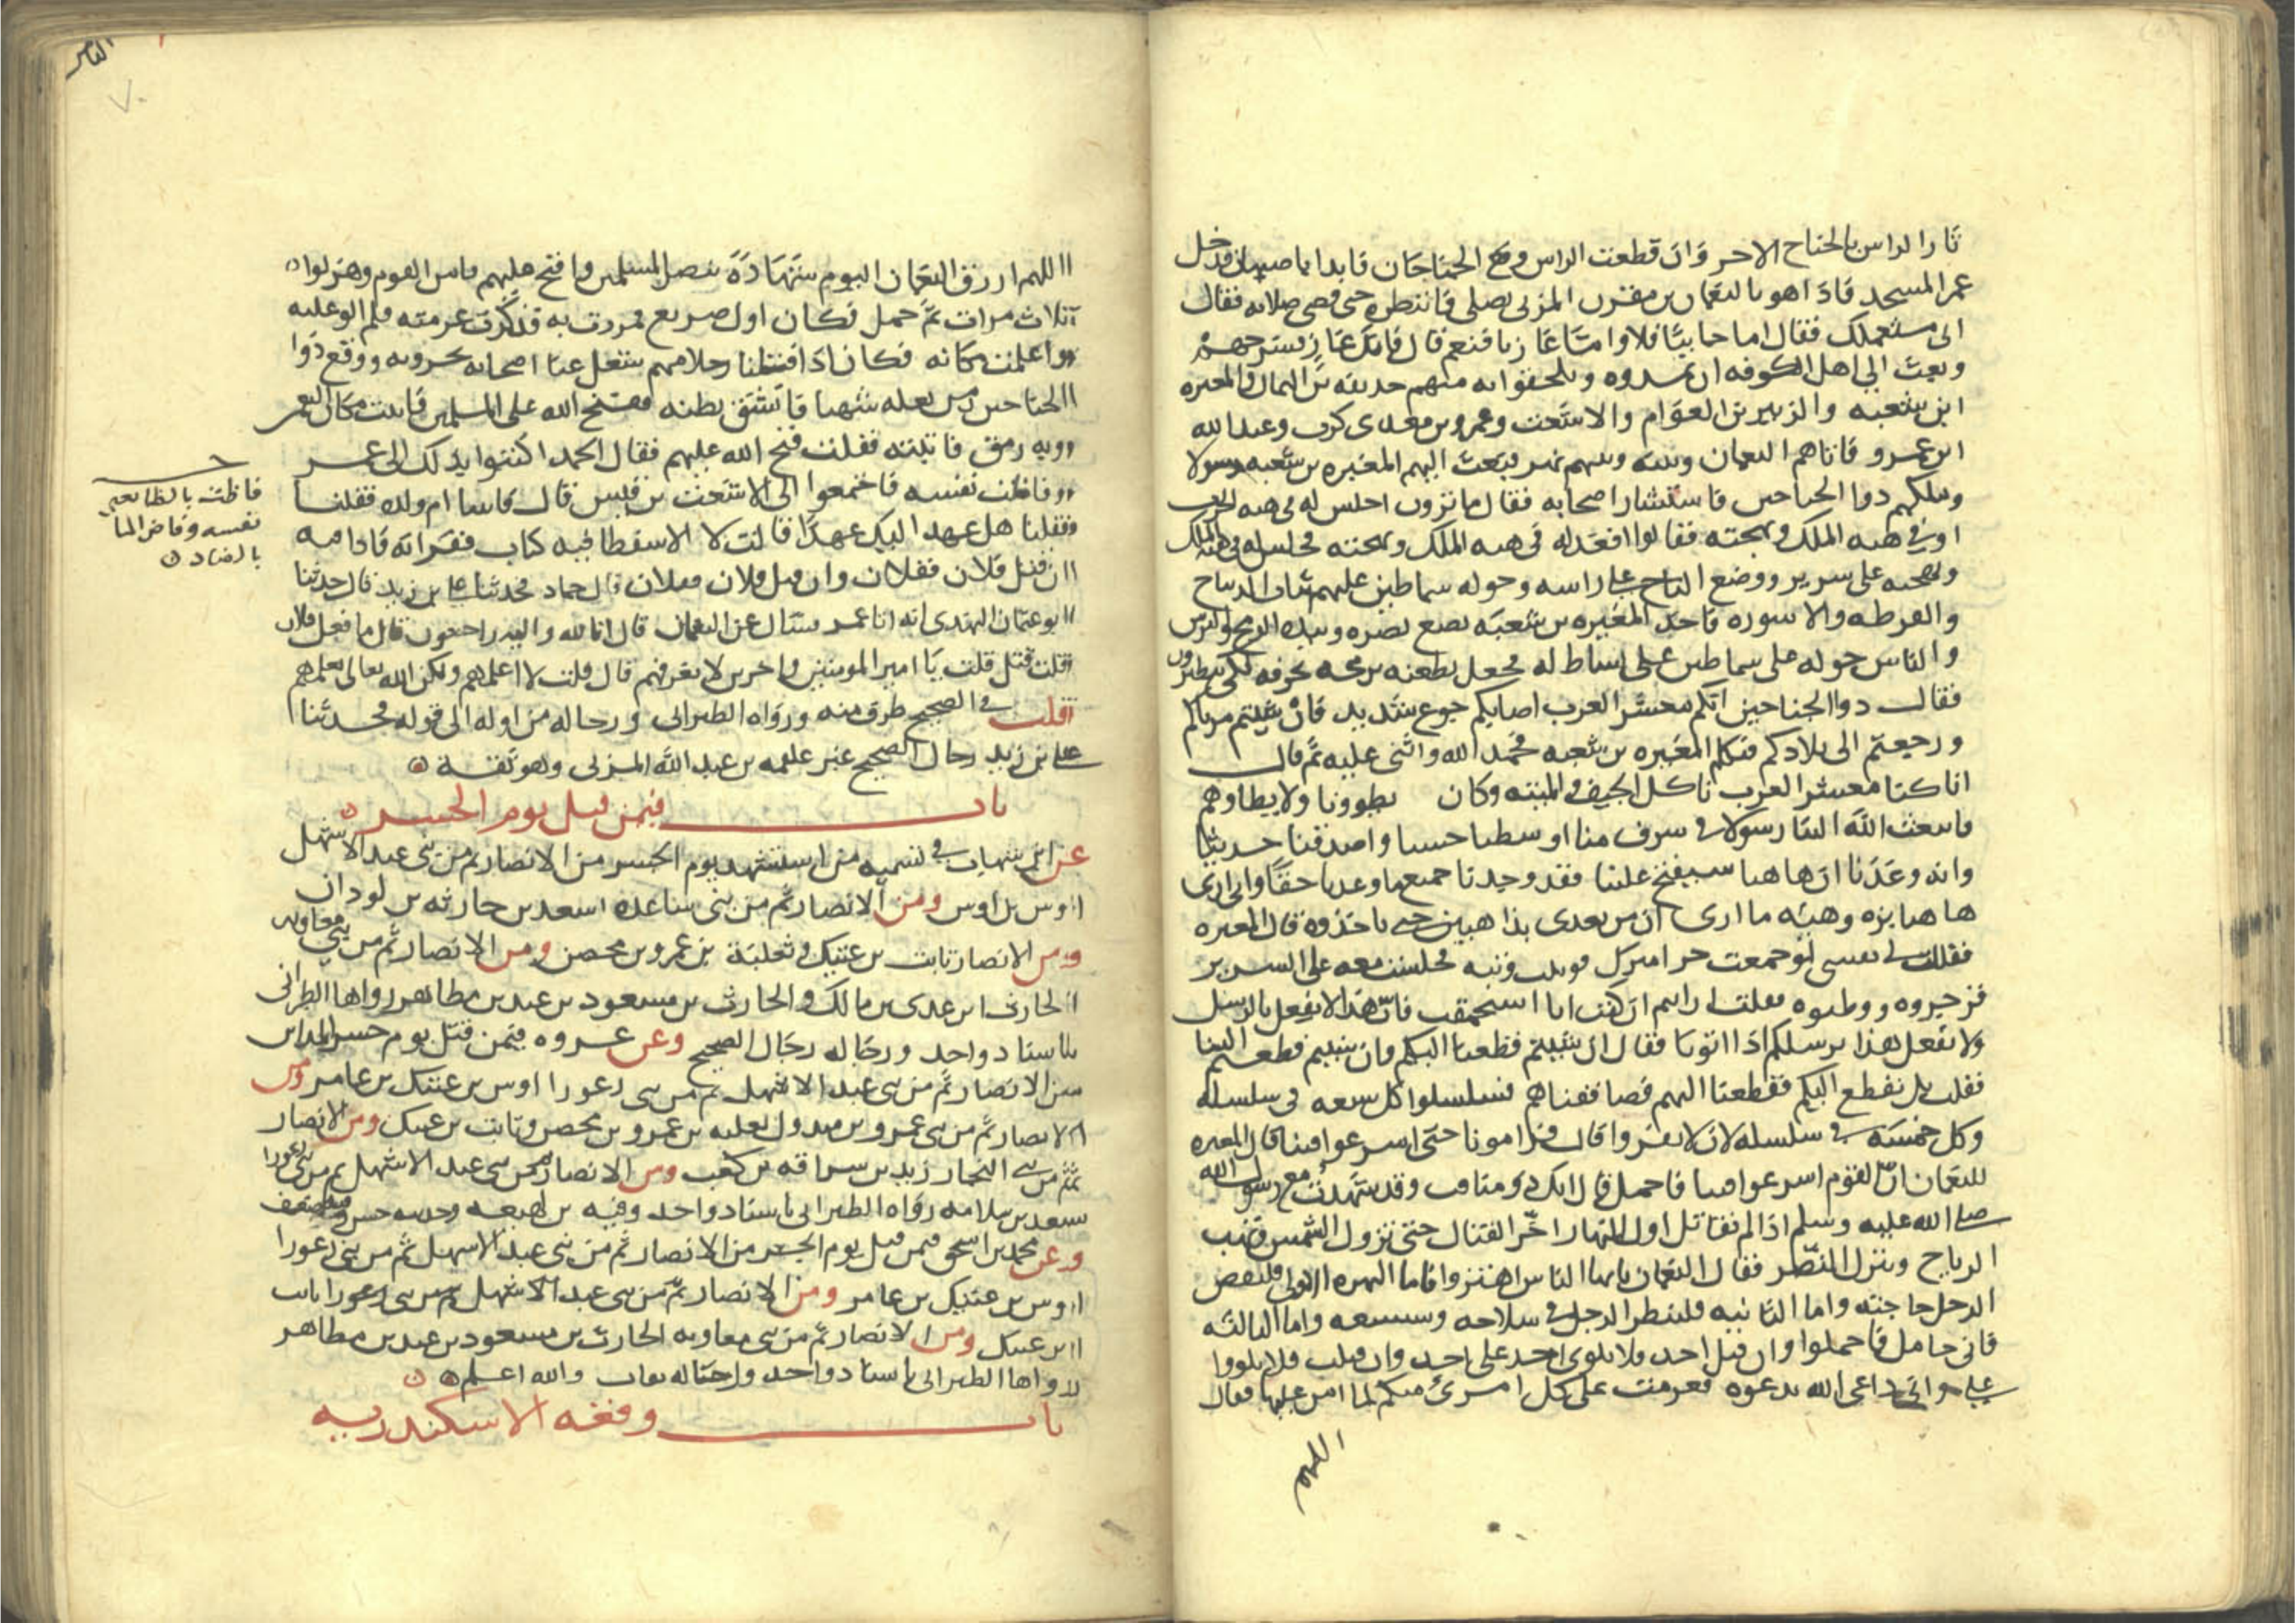 ثارا لراس بالجناح الاخر وان قطعت الراس وقع الجناحان فابدا باصبهان فدخل
عمر المسجد فاذا هو بالنعمان بن مقرن المزني يصلي فانتظره حتى قضى صلاته فقال
اني مستعملك فقال اما جابيا فلا واما غازيا فنعم قال فانك غاز فسرحهم
وبعث الى اهل الكوفه ان يمدوه ويلحقوا به منهم حذيفه بن اليمان والمغيره
ابن شعبه والزبير بن العوام والاشعث وعمرو بن معدي كرب وعبد الله
ابن عمرو فاتاهم النعمان وبينه وبينهم نهر فبعث اليهم المغيره بن شعبه رسولا
وملكهم ذوا الجناحين فاستشار اصحابه فقال ما ترون اجلس له في هيه الحرب
او في هيه الملك وبهجته فقالوا اقعد له في هيه الملك وبهجته فجلس له في هيه الملك
وبهجته على سرير ووضع التاج على راسه وحوله سماطين عليهم ثياب الديباج
والقرطه والاسوره فاخذ المغيره بن شعبه يضع بصره وبيده الرمح والترس
والناس حوله على سماطين على بساط له فجعل يطعنه برمحه يخرقه لكي يتطيرون
فقال ذوا الجناحين انكم معشر العرب اصابكم جوع شديد فان شيتم مرناكم
ورجعتم الى بلادكم فتكلم المغيره بن شعبه فحمد الله واثنى عليه ثم قال
انا كنا معشر العرب ناكل الجيف والميته وكان يطوونا ولا يطاوهم
فابتعث الله الينا رسولا في شرف منا اوسطنا حسبا واصدقنا حديثا
وانه وعدنا ان هاهنا سيفتح علينا فقد وجدنا جميع ما وعدنا حقا واني ارى
هاهنا بزه وهيئه ما ارى ان من بعدي بذاهبين حتى ياخذوه قال المغيره
فقالت لي نفسي لو جمعت جراميزك فوثبت وثبه فجلست معه على السرير
فزجروه ووطئوه فقلت ارايتم ان كنت انا استحمقت فان هذا لا يفعل بالرسل
ولا نفعل هذا برسلكم اذا اتونا فقال ان شيتم قطعنا اليكم وان شيتم قطعتم الينا
فقلت بل نقطع اليكم فقطعنا اليهم فصاففناهم فتسلسلوا كل سبعه في سلسله
وكل خمسه في سلسله لان لا يفروا قال فرامونا حتى اسرعوا فينا قال المغيره
للنعمان ان القوم اسرعوا فينا فاحمل قال انك ذو مناقب وقد شهدت مع رسول الله
صلى الله عليه وسلم اذا لم نقاتل اول النهار اخر القتال حتى تزول الشمس وتهب
الرياح وينزل النصر فقال النعمان يا ايها الناس اهتزوا فاما الهزه الاولى فليقض
الرجل حاجته واما الثانيه فلينظر الرجل في سلاحه وشسعه واما الثالثه
فاني حامل فاحملوا وان قتل احد فلا يلوي احد على احد وان قتلت فلا تلووا
علي واني داعي الله بدعوه فعزمت على كل امرئ منكم لما امن عليها فقال
اللهم
الثامن
٧٠
اللهم ارزق النعمان اليوم شهادة بنصر المسلمين وافتح عليهم فامن القوم وهز لواه
ثلاث مرات ثم حمل فكان اول صريع فمررت به فذكرت عزمته فلم الو عليه
واعلمت مكانه فكان اذا قتلنا رجلا منهم شغل عنا اصحابه يجرونه ووقع ذوا
الجناحين من بغله شهبا فانشق بطنه ففتح الله على المسلمين فاتيت مكان النعمن
وبه رمق فاتيته فقلت فتح الله عليهم فقال الحمد اكتبوا بذلك الى عمر
وفاظت نفسه فاجتمعوا الى الاشعث بن قيس قال فاتينا ام ولده فقلنا
فقلنا هل عهد اليك عهدا قالت لا الا سفطا فيه كتاب فقراته فاذا فيه
ان قتل فلان ففلان وان قتل فلان ففلان قال حماد فحدثنا علي بن زيد قال حدثنا
ابو عثمان النهدي انه اتا عمر سال عن النعمان قال انا لله وانا اليه راجعون قال ما فعل فلان
قلت قتل قلت يا امير المومنين واخرين لا نعرفهم قال قلت لا اعلمهم ولكن الله تعالى يعلمهم
قلت في الصحيح طرف منه ورواه الطبراني ورجاله من اوله الى قوله فحدثنا
علي بن زيد رجال الصحيح غير علقمه بن عبد الله المزني وهو ثقة
حـ
فاظت بالظا يعني
نفسه وفاض الما
بالضاد
باب فيمن قتل يوم الجسر
عن ابن شهاب في تسميه من استشهد يوم الجسر من الانصار ثم من بني عبد الاشهل
اوس بن اوس ومن الانصار ثم من بني ساعده اسعد بن حارثه بن لوذان
ومن الانصار ثابت بن عتيك وثعلبة بن عمرو بن محصن ومن الانصار ثم من بني معاويه
الحارث ابن عدي بن مالك والحارث بن مسعود بن عبد بن مظاهر رواها الطبراني
باسناد واحد ورجاله رجال الصحيح وعن عروه فيمن قتل يوم جسر المداين
من الانصار ثم من بني عبد الاشهل ثم من بني زعورا اوس بن عتيك بن عامر ومن
الانصار ثم من بني عمرو بن مبذول ثعلبه بن عمرو بن محصن وثابت بن عتيك ومن الانصار
ثم من بني النجار زيد بن سراقه بن كعب ومن الانصار ثم من بني عبد الاشهل ثم من بني زعورا
سعد بن سلامه رواه الطبراني باسناد واحد وفيه بن لهيعه وحديثه حسن وفيه ضعف
وعن محمد بن اسحق فيمن قتل يوم الجسر من الانصار ثم من بني عبد الاشهل ثم من بني زعورا
اوس بن عتيك بن عامر ومن الانصار ثم من بني عبد الاشهل ثم من بني زعورا ثابت
ابن عتيك ومن الانصار ثم من بني معاويه الحارث بن مسعود بن عبد بن مظاهر
رواها الطبراني باسناد واحد ورجاله ثقات والله اعلم
باب وقعه الاسكندريه